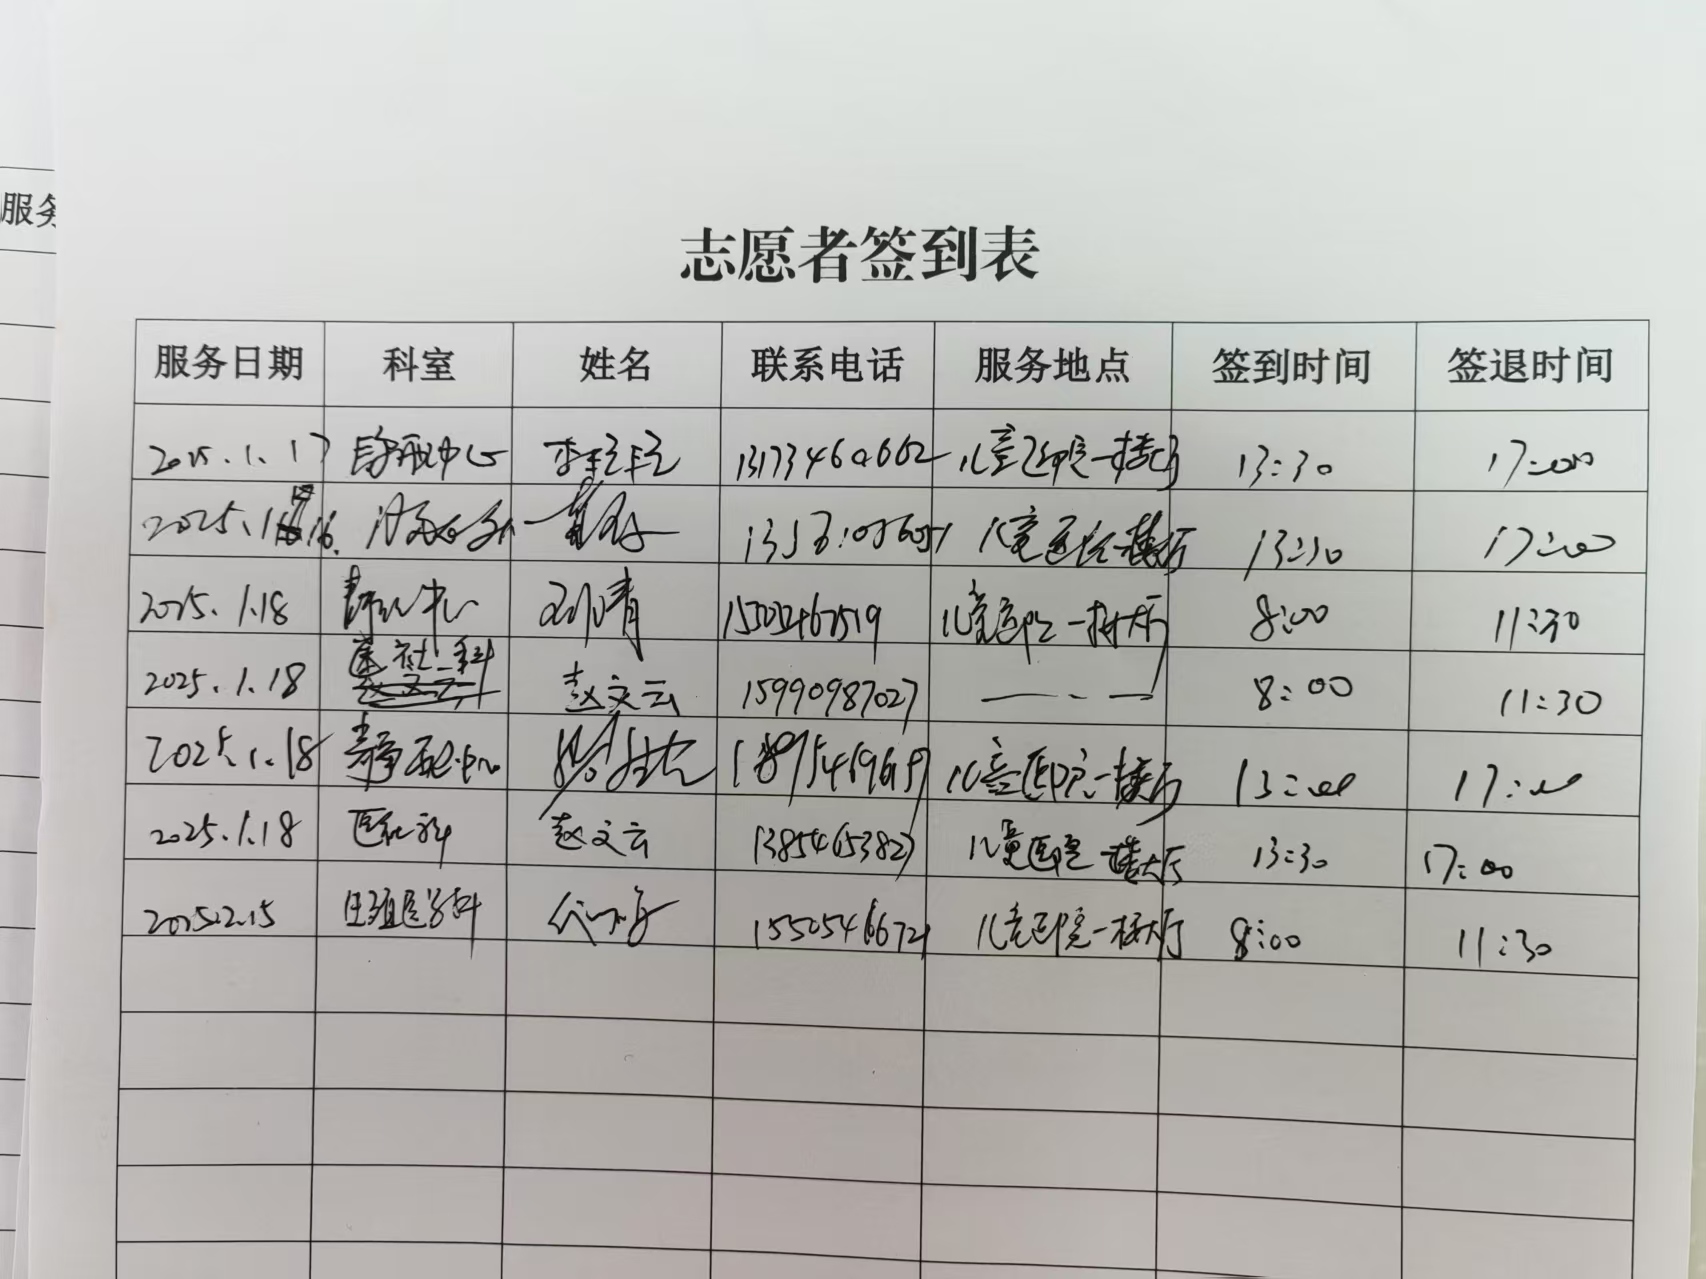 服务
志愿者签到表
服务日期 科室 姓名 联系电话 服务地点 签到时间 签退时间
2025.1.17 静配中心 13173460662 儿童医院一楼大厅 13:30 17:00
2025.1 16. 儿童医院一楼大厅 13:30 17:00
2025.1.18 静配中心 15505467519 儿童医院一楼大厅 8:00 11:30
2025.1.18 赵文云 15990987027 8:00 11:30
2025.1.18 静配中心 儿童医院一楼大厅 13:00 17:00
2025.1.18 赵文云 13854653827 儿童医院一楼大厅 13:30 17:00
2025.2.15 生殖医学科 15505466721 儿童医院一楼大厅 8:00 11:30